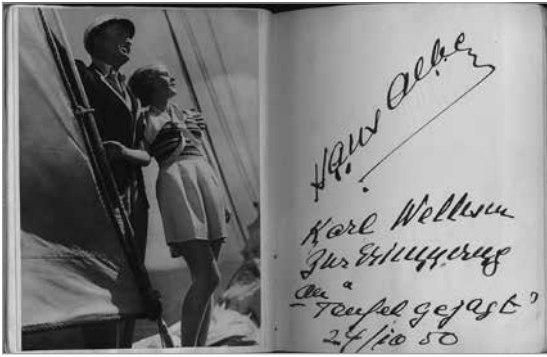 Hans Albers
Karl
Zur Erinnerung
an "
Teufel gejagt"
24/10 50